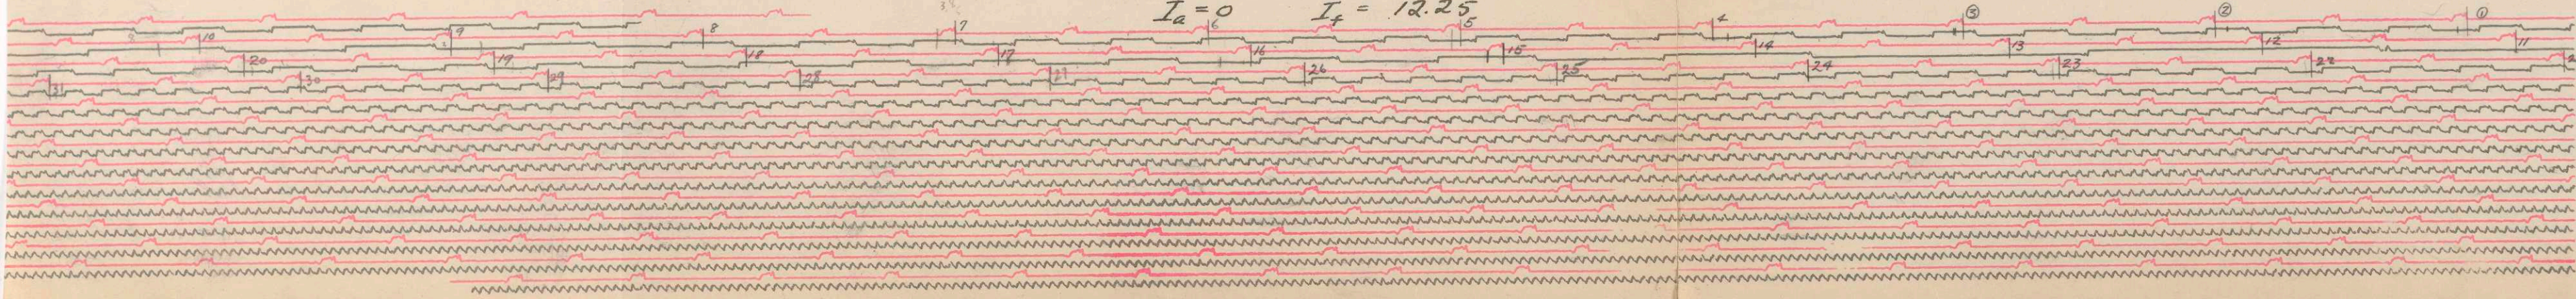 I_a = 0 I_f = 12.25
10 9 8 7 6 5 4 ③ ② ①
20 19 18 17 16 15 14 13 12 11
31 30 29 28 27 26 25 24 23 22